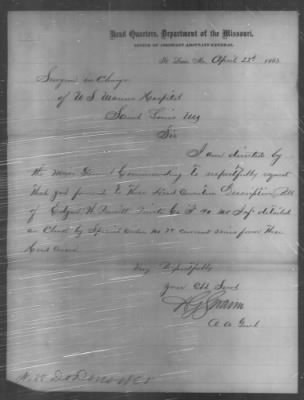 Head Quarters, Department of the Missouri,
OFFICE OF ASSISTANT ADJUTANT-GENERAL.
St. Louis, Mo., April 22d 1863
Surgeon in Charge
of U S Marine Hospital
Saint Louis Mo
Sir
I am directed by
the Major Genl Commanding to respectfully request
that you forward to these Head Quarters Descriptive
of Edgar H. Private Co. F. 40 Mo Inf detailed
as Clerk by Special Order No current series from these
Head Quars
Very Respectfully
Your Obt Servt
A A Genl